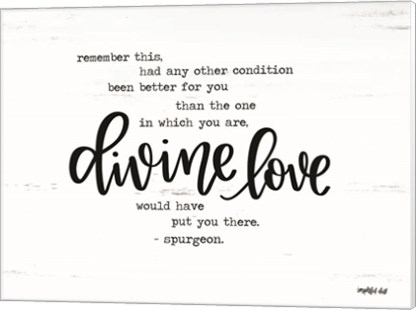 remember this,
had any other condition
been better for you
than the one
in which you are,
divine love
would have
put you there.
- spurgeon.